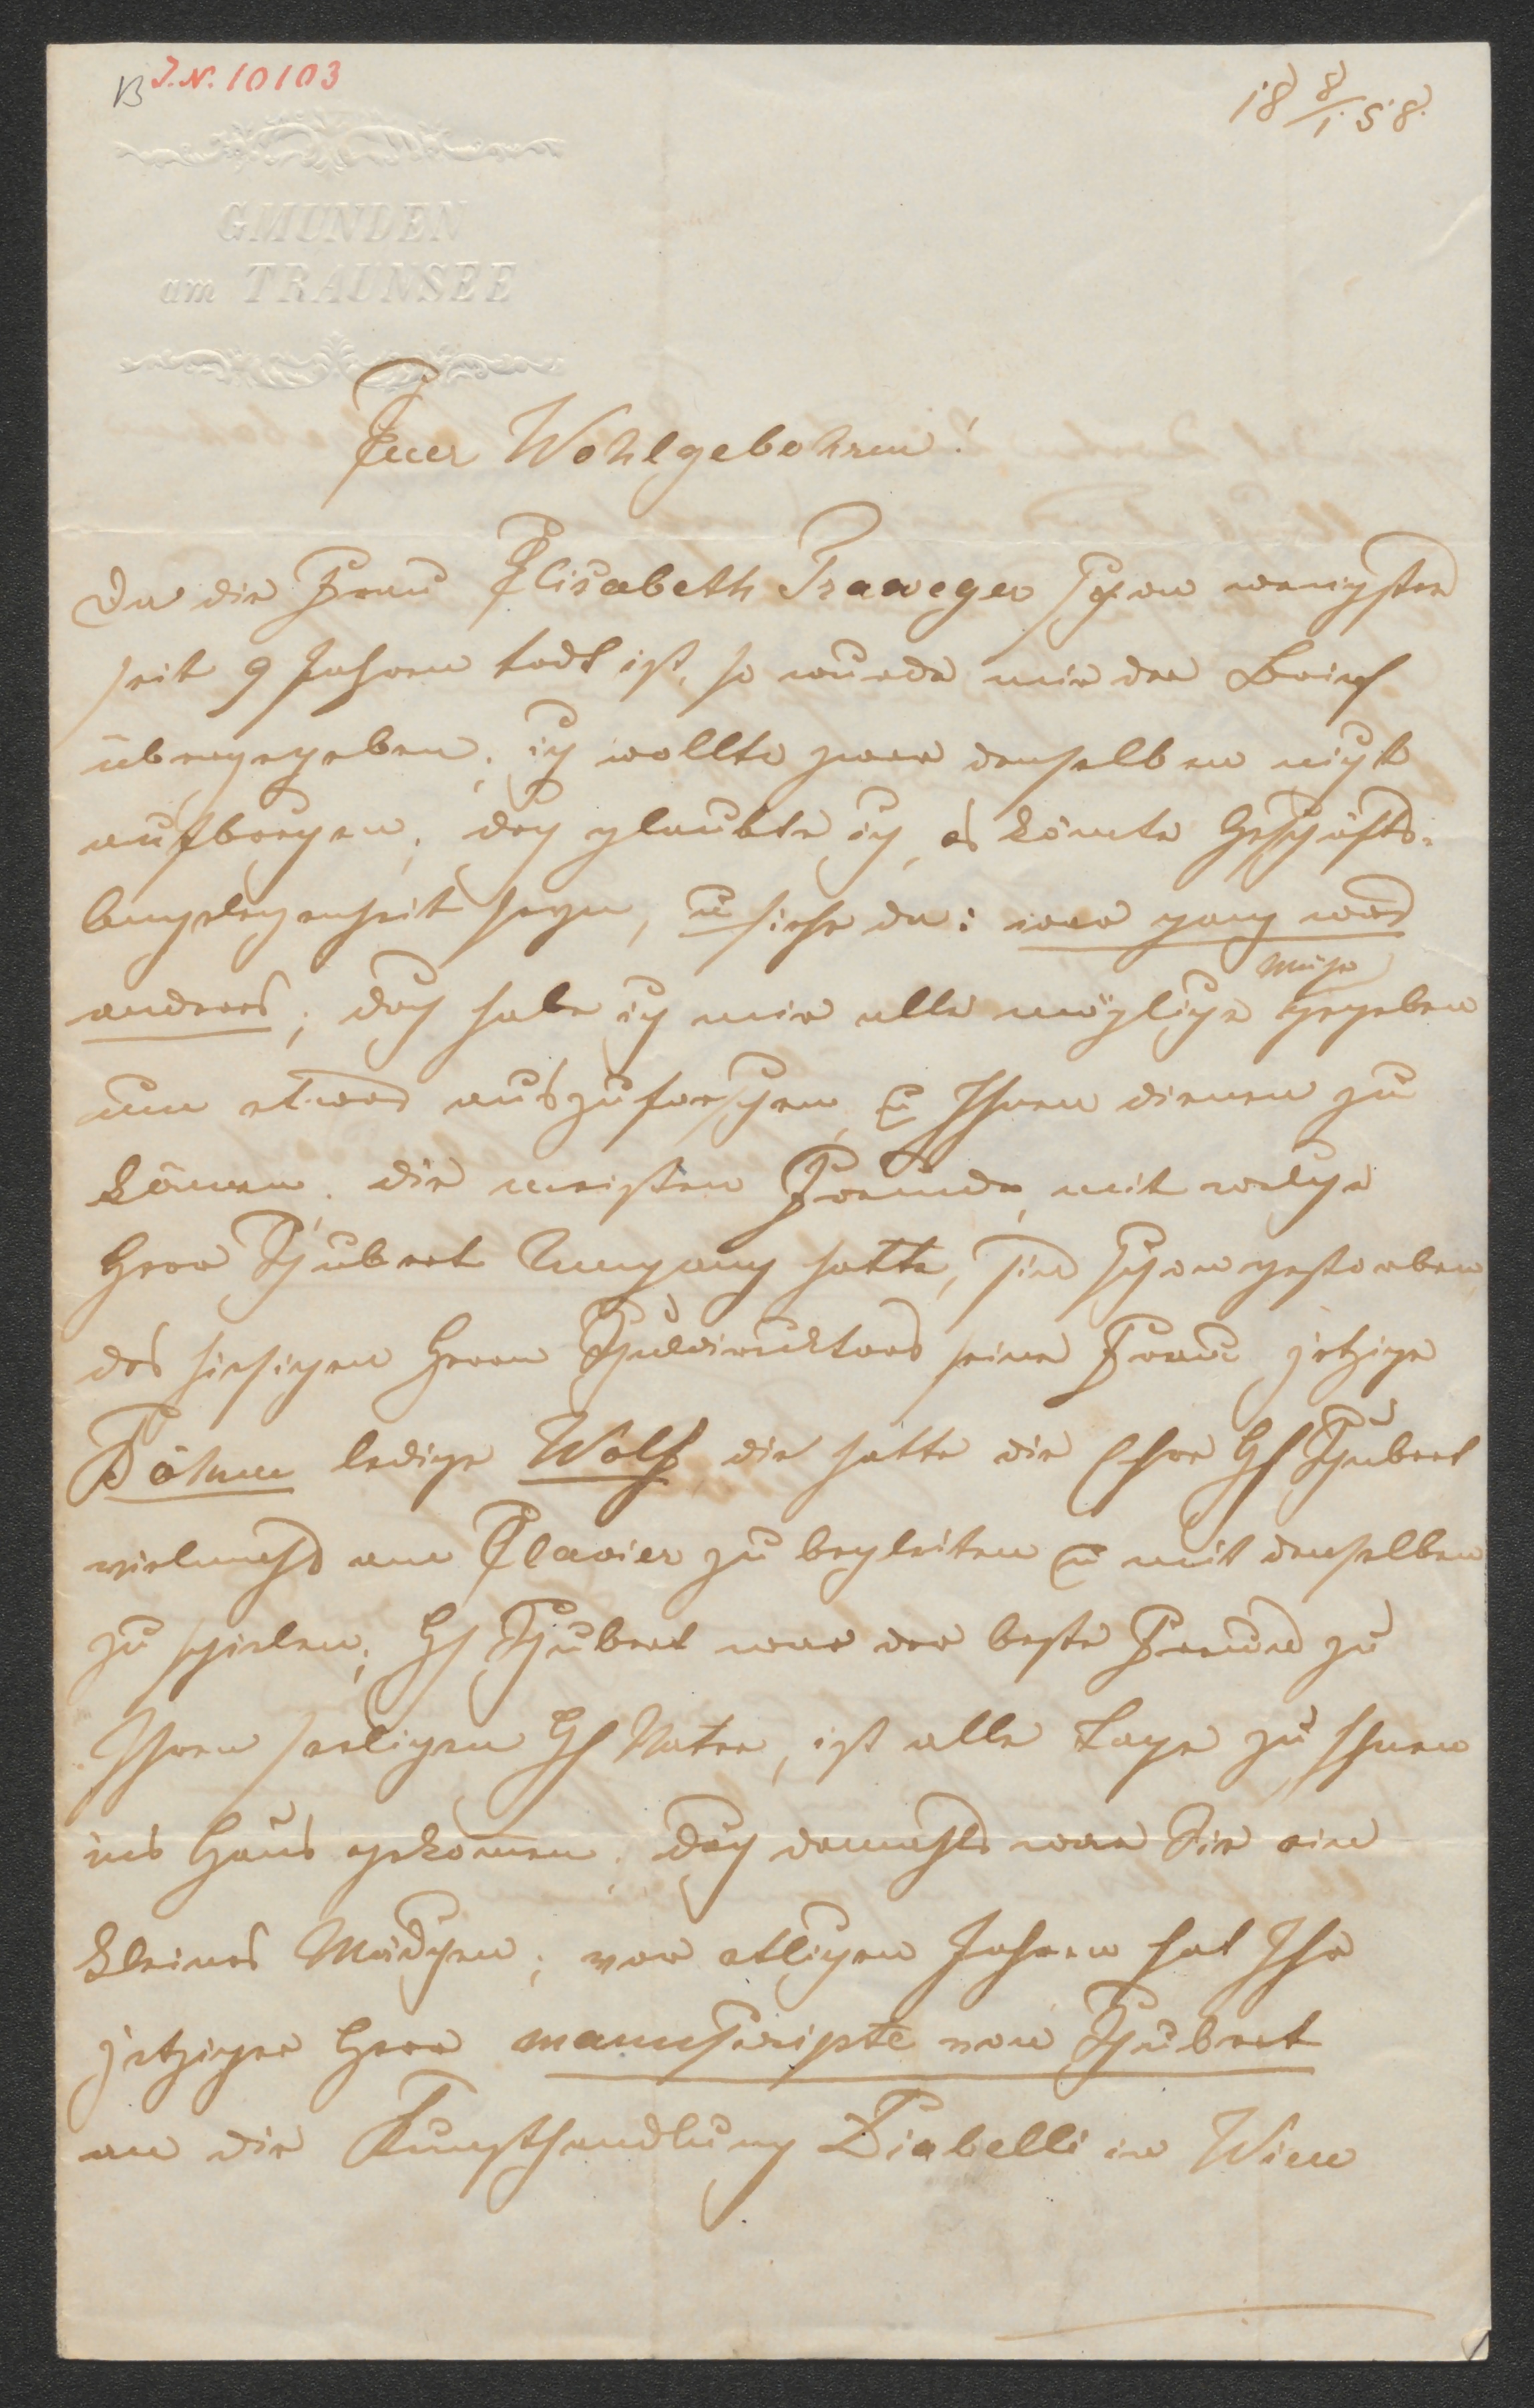 B J.N. 10103
18 8/1 58.
GMUNDEN
am TRAUNSEE
Euer Wohlgebohren!
Da die Frau Elisabeth Traweger schon wenigsten
seit 9 Jahren todt ist, so wurde mir der Brief
übergegeben; ich wollte zwar denselben nicht
aufbrechen; doch glaubte ich, es könte Geschäfts-
angelegenheit seyn, u siehe da: war ganz was
anderes; doch habe ich mir alle mögliche Mühe gegeben
um etwas auszuforschen, u Ihnen dienen zu
können. die meisten Freunde, mit welche
Herr Schubert Umgang hatte, sind schon gestorben
des hiesigen Herrn Schuldirecktors seine Frau jetzige
Böhm ledige Wolf, die hatte die Ehre H Schubert
vielmahls am Clavier zu begleiten u mit denselben
zu spielen; H Schubert war der beste Freund zu
Ihren seeligen H Vater, ist alle Tage zu Ihnen
ins Haus gekommen. doch damahls war Sie ein
kleines Mädchen; vor etlichen Jahren hat Ihr
jetziger Herr manuscripte von Schubert
an die Kunsthandlung Diabelli in Wien